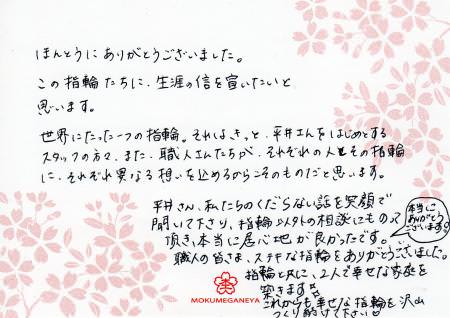 ほんとうにありがとうございました。
この指輪たちに、生涯の信を宣いたいと
思います。
世界にたった一つの指輪。それはきっと、平井さんをはじめとする
スタッフの方々、また、職人さんたちが、それぞれの人とその指輪
に、それぞれ異なる想いを込めるからこそのものだと思います。
平井さん、私たちのくだらない話を笑顔で
聞いて下り、指輪以外の相談にものって
頂き、本当に居心地が良かったです。
本当に
ありがとう
ございます
職人の皆さま、ステキな指輪をありがとうございました。
指輪と共に、2人で幸せな家庭を
築きます
これからも幸せな指輪を沢山
つくり続けて下さい
MOKUMEGANEYA